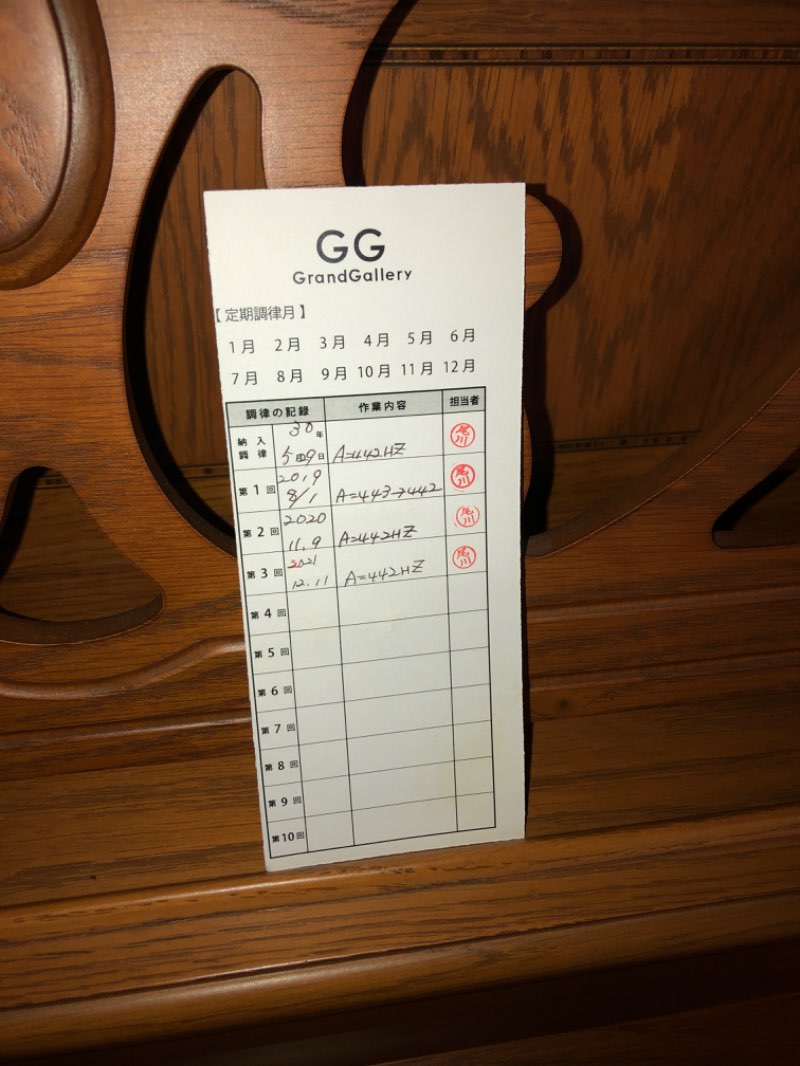 GG
GrandGallery
【定期調律月】
1月 2月 3月 4月 5月 6月
7月 8月 9月 10月 11月 12月
調律の記録 作業内容 担当者
納入調律 30年 5月9日 A=442HZ 尾川
第1回 2019 8/1 A=443→442 尾川
第2回 2020 11.9 A=442HZ 尾川
第3回 2021 12.11 A=442HZ 尾川
第4回
第5回
第6回
第7回
第8回
第9回
第10回